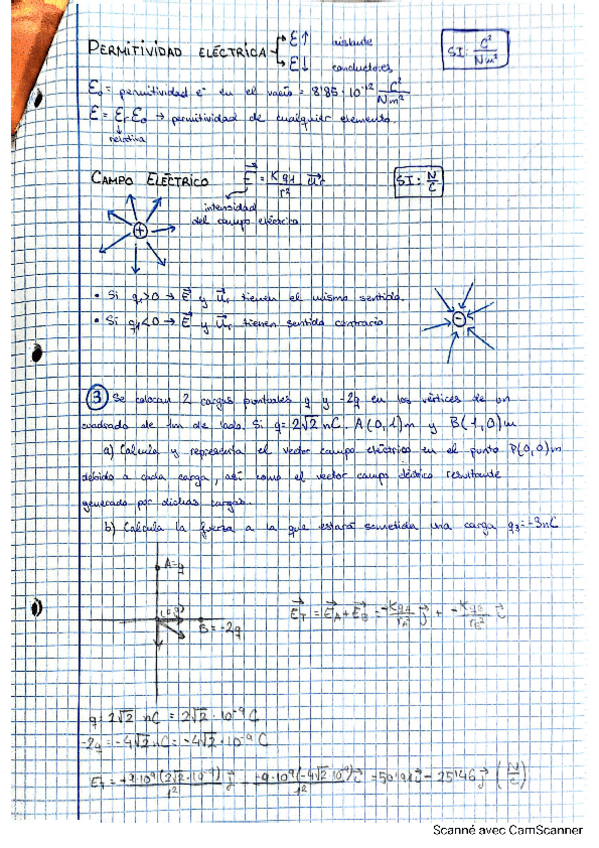 PERMITIVIDAD ELÉCTRICA → ε↑ aislante
→ ε↓ conductores
SI: C²/Nm²
ε₀ = permitividad e⁻ en el vacío = 8'85·10⁻¹² C²/Nm²
ε = εᵣ ε₀ → permitividad de cualquier elemento.
relativa
CAMPO ELÉCTRICO E⃗ = K q₁/r² u⃗r
SI: N/C
intensidad
del campo eléctrico
+
• Si q₁>0 → E⃗ y u⃗r tienen el mismo sentido.
• Si q₁<0 → E⃗ y u⃗r tienen sentido contrario
-
③ Se colocan 2 cargas puntuales q y -2q en los vértices de un
cuadrado de 1m de lado. Si q=2√2 nC. A(0,1)m y B(1,0)m
a) Calcula y representa el vector campo eléctrico en el punto P(0,0)m
debido a cada carga, así como el vector campo eléctrico resultante
generado por dichas cargas.
b) Calcula la fuerza a la que estará sometida una carga q₃=-3nC
A=q
(0,0)
B=-2q
E⃗T = E⃗A + E⃗B = -K qA/rA² j⃗ + -K qB/rB² i⃗
q = 2√2 nC = 2√2·10⁻⁹ C
-2q = -4√2 nC = -4√2·10⁻⁹ C
50'91 i⃗ - 25'46 j⃗ (N/C)
Scanné avec CamScanner